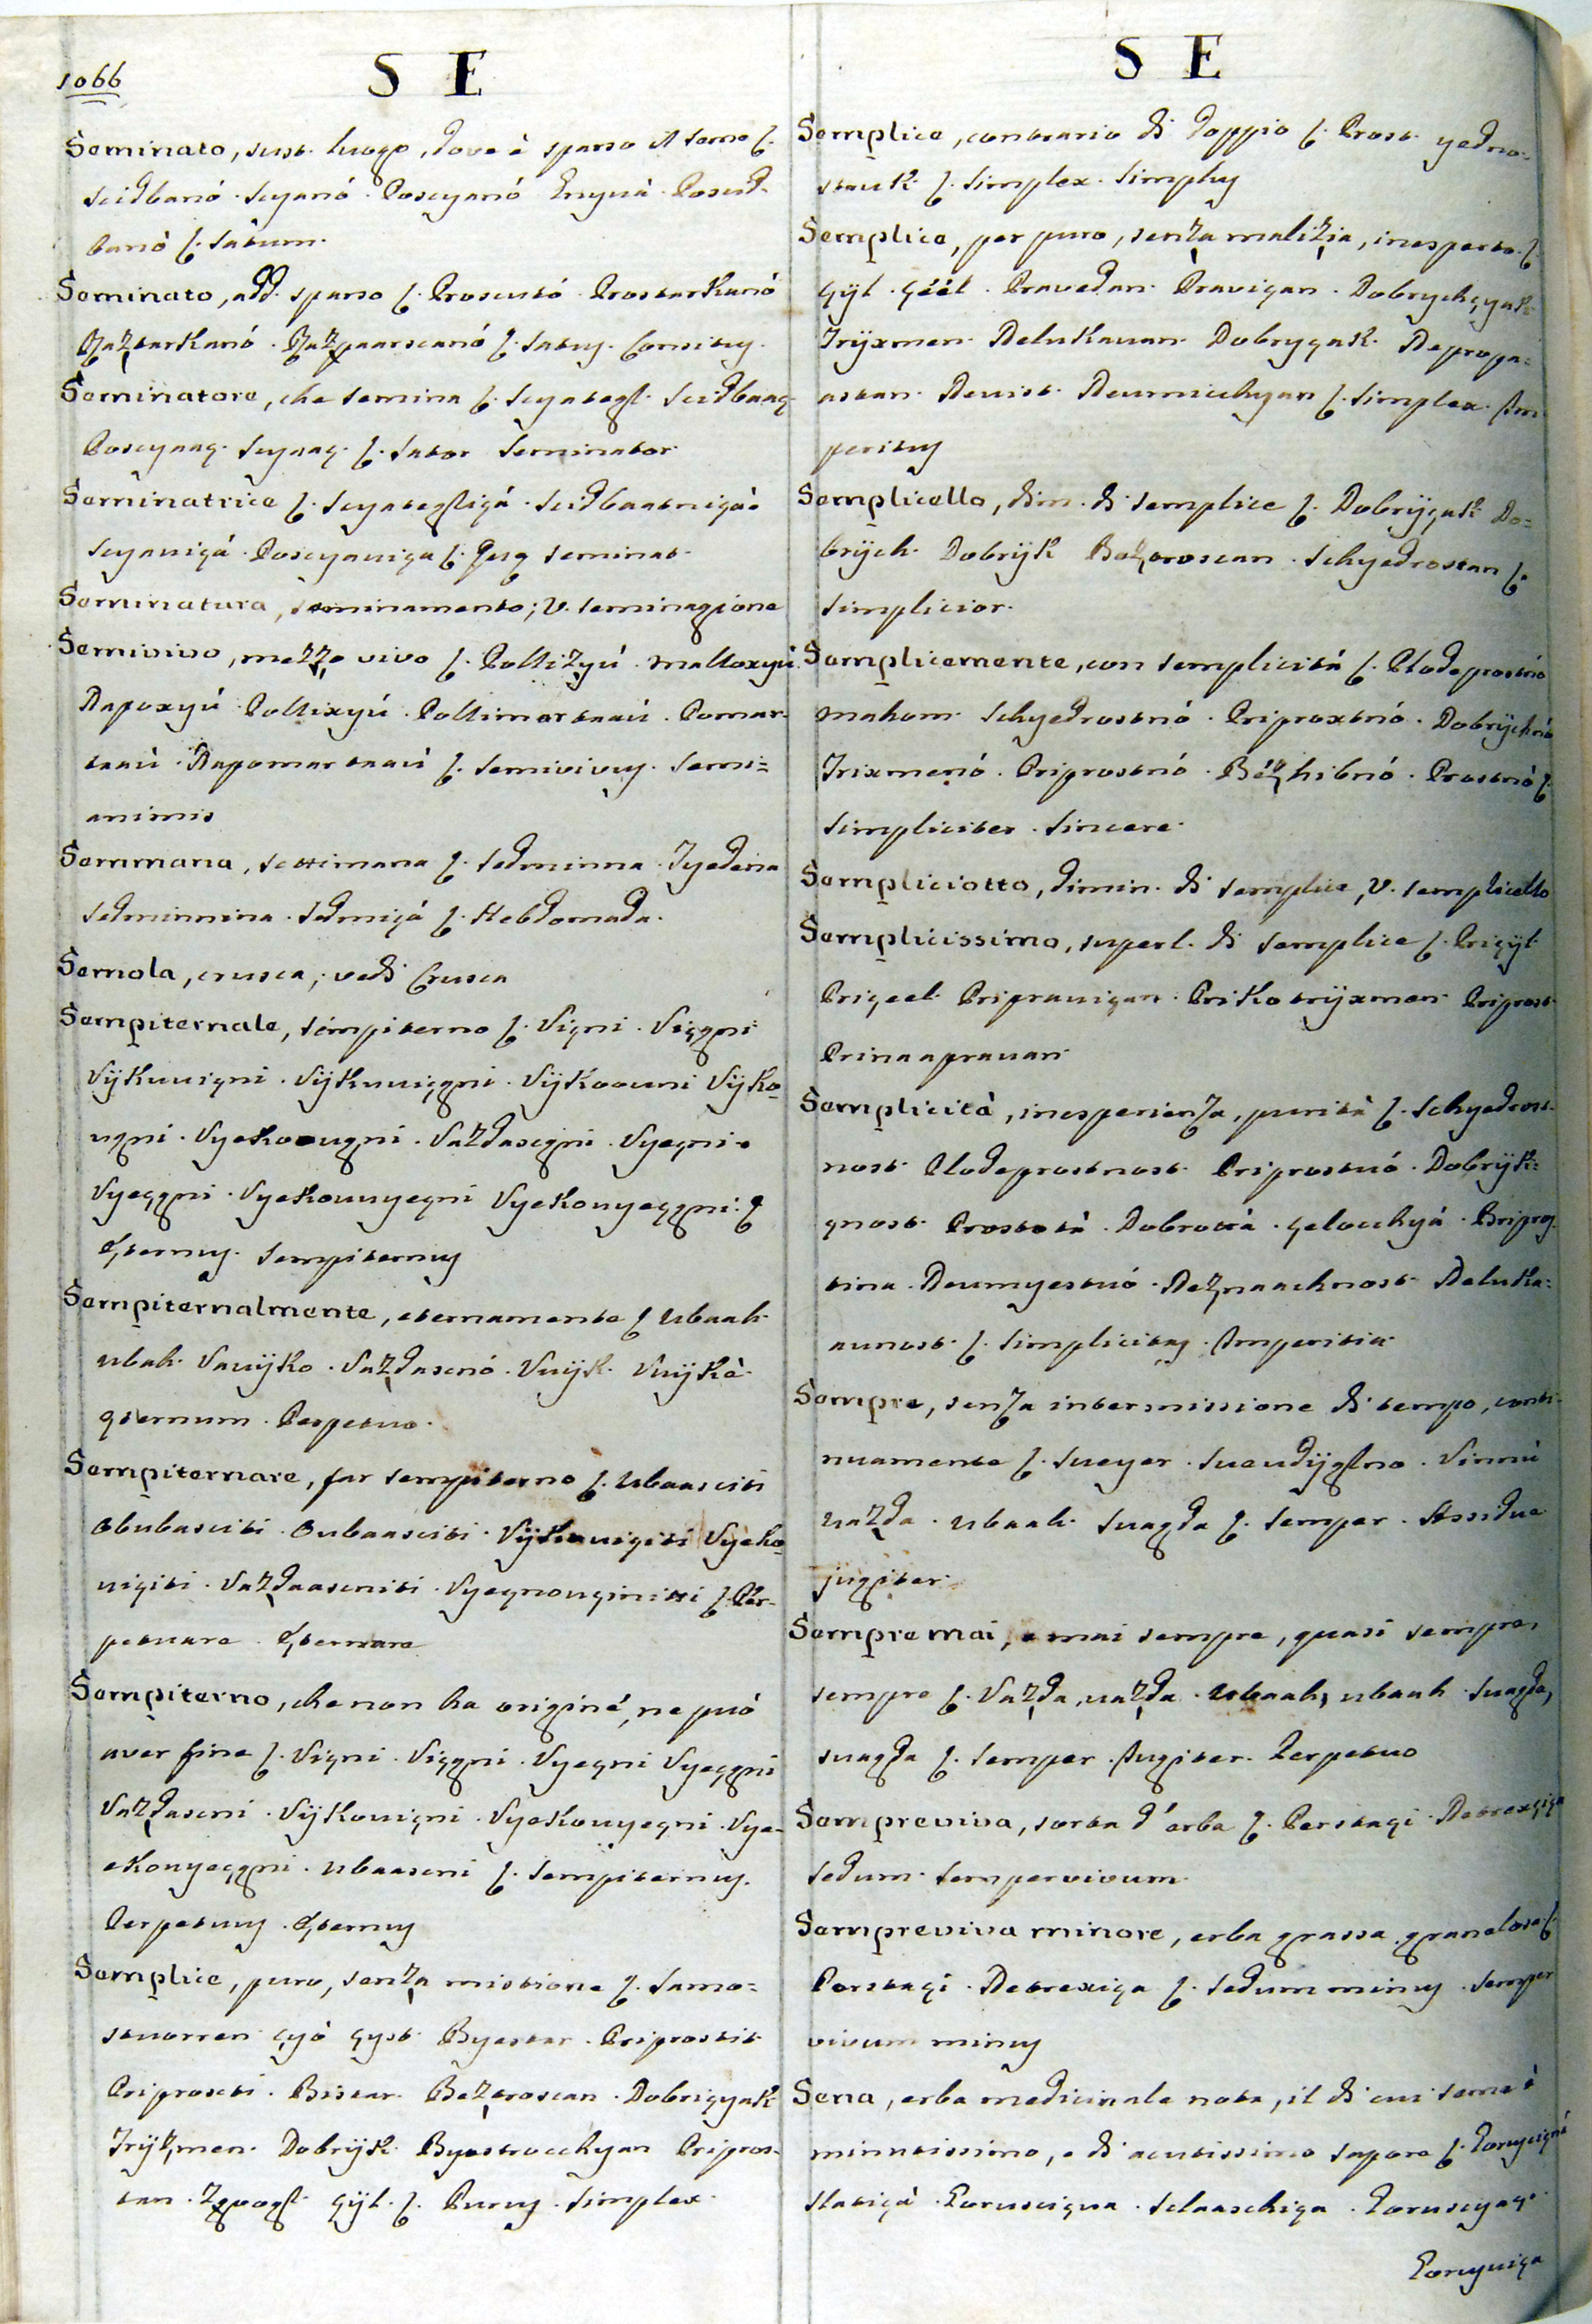 1066
S E
Seminato, sust. luogo, dove è sparso il seme ſ.
Seidbanó. Seyanó. Poseyanó Poseid-
banò ſ. Sàtum.
Seminato, add. sparso ſ. Proseutó. Prostarkanó
Raztarkanó. Razpaarscanó ſ. Satus. Consitus.
Seminatore, che semina ſ. Seyategl. Seidbaaç
Poseyaaç. Seyaaç. ſ. Sator Seminator
Seminatrice ſ. Seyategliçá. Seidbaatniça.
Seyaviçá. Poseyaviça ſ. Seminat.
Seminatura, seminamento; v. seminagione
Semivivo, mezzo vivo ſ. Pollizyú. malloxyú.
Napoxyú. Pollixyú. Pollimartaaú. Pomar-
taaú. Napomartaaú ſ. Semivivus. Semi=
animis
Semmana, settimana ſ. Sedminna. Tyedena
Sedminnina. Sedmiçá ſ. Hebdomada.
Semola, crusca; vedi Crusca
Sempiternale, sempiterno ſ. Viçni. Viççni
Vijkuviçni. Vijkuviççni. Vijkoouni Vijko-
ugni. Vyekoougni. Vazdascgni. Vyeçni.
Vyeççni. Vyekouuyeçni Vyekouyeççni. ſ
Æternus. Sempiternus
Sempiternalmente, eternamente ſ ubaah
ubah. Vavijko. Vazdascnó. Vuijk. Vuijkè.
çternum. Perpetuo.
Sempiternare, far sempiterno ſ. Ubaasciti
Obubasciti. Oubaasciti. Vijkuviçiti Vyeko-
viçiti. Vazdaasciniti. Vyeçnouçinitti ſ. Per-
petuare. Æternare
Sempiterno, che non ha origine, ne può
aver fine ſ. Viçni. Viççni. Vyeçni Vyeççni
Vazdasceni. Vijkoviçni. Vyekouyeçni. Vye-
ekouyeççni. Ubaasceni ſ. Sempiternus.
Perpetuus. Æternus
Semplice, puro, senza mistione ſ. Samo=
stuorren çyó çyst. Byestar. Priprostit
Priproscti. Bistar. Beztroscan. Dobriçyak
Trijzmen. Dobrijk. Byestrocchyan Pripros-
tan. çijt. ſ. Purus. Simplex.
S E
Semplice, contrario di doppio ſ. Prost. yedno-
stuk. ſ. Simplex. Simplus
Semplice, per puro, senza malizia, inesperto. ſ.
çijt. çéét. Pravedan. Praviçan. Dobrychçyak
Trijxmen. Nelukauan. Dobryçak. Nepropa=
astan. Neuist. Neumicchyan ſ. Simplex. Im
peritus
Semplicello, dim. di semplice ſ. Dobrijçak Do=
brijch. Dobrijk Bezproscan. Schyedrostan ſ.
Simplicior.
Semplicemente, con semplicità ſ. Plodeprostnó
mahom. Schyedrostnó. Priproxtnó. Dobrijchnó
Trixmenó. Priprostnó. Bézhibnó. Prostnó ſ.
Simpliciter. Sincere.
Sempliciotto, dimin. di semplice, v. semplicello
Semplicissimo, superl. di semplice ſ. Priçijt.
Priçeet. Pripraviçan. Prikotrijxmen. Priprost
Prinaapravan.
Semplicità, inesperienza, purità ſ. Schyedrost-
nost. Plodeprostnost. Priprostuó. Dobrijk=
gnost. Prostotà. Dobrottà. çelocchyá. Pripros-
tina. Neumyestuó. Neznaachnost. Neluka=
aunost. ſ. Simplicitas. Imperitia.
Sempre, senza intermissione di tempo, conti-
nuamente ſ. Sueyer. Suaudijglno. Vinnú
Vazda. Ubaah. Suagda ſ. Semper. Assidue
jugiter.
Sempre mai, e mai sempre, quasi sempre,
sempre ſ. Vazda, uazda. Ubaah, ubaah. Suagda,
suagda ſ. Semper. Jugiter. Perpetuo
Sempreviva, sorta d'erba ſ. Perstaçi. Netrexgiça
Sedum. Sempervivum.
Sempreviva minore, erba grassa granelosa ſ.
Perstaçi. Netrexiça ſ. Sedum minus. Semper
vivum minus
Sena, erba medicinale nota, il di cui seme è
minutissimo, e di acutissimo sapore ſ.
Slatiçà. Goruseiçua. Sclaaschiça. Goruscyaç.
Gorusuiça